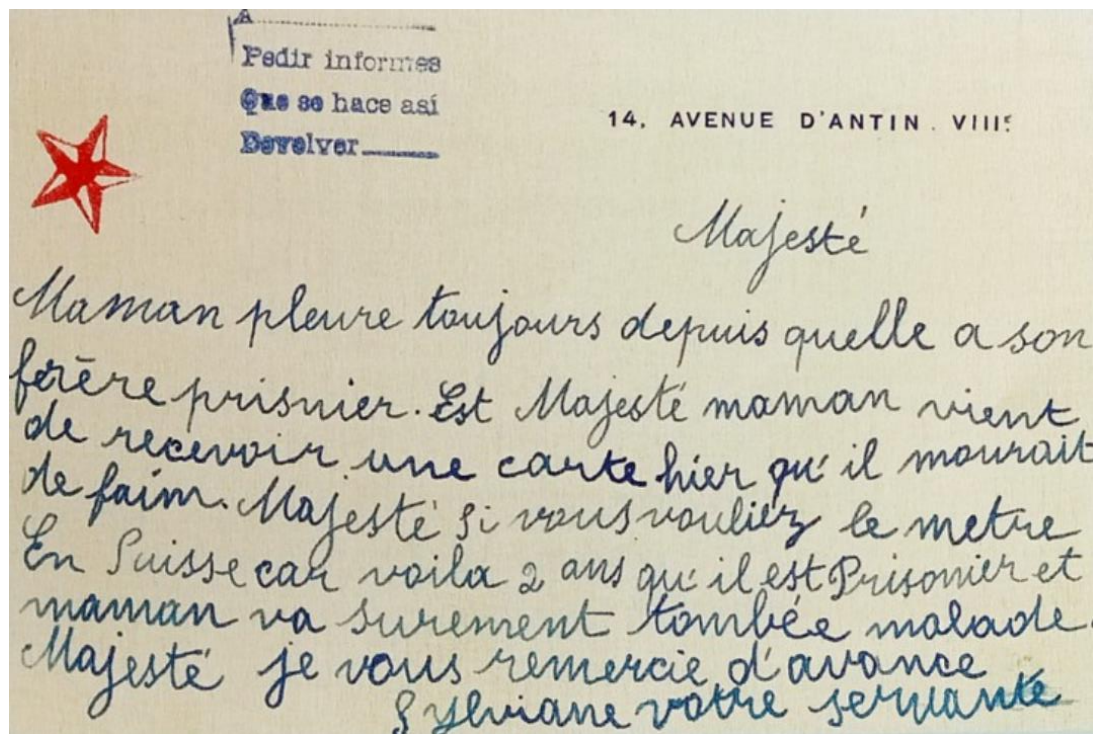 A
Pedir informes
Que se hace así
Devolver
14, AVENUE D'ANTIN. VIIIᵉ
Majesté
Maman pleure toujours depuis quelle a son
ferère prisnier. Est Majesté maman vient
de recevoir une carte hier qu'il mourait
de faim. Majesté si vous vouliez le metre
En Suisse car voila 2 ans qu'il est Prisonier et
maman va surement tombée malade.
Majesté je vous remercie d'avance
Sylviane votre servante